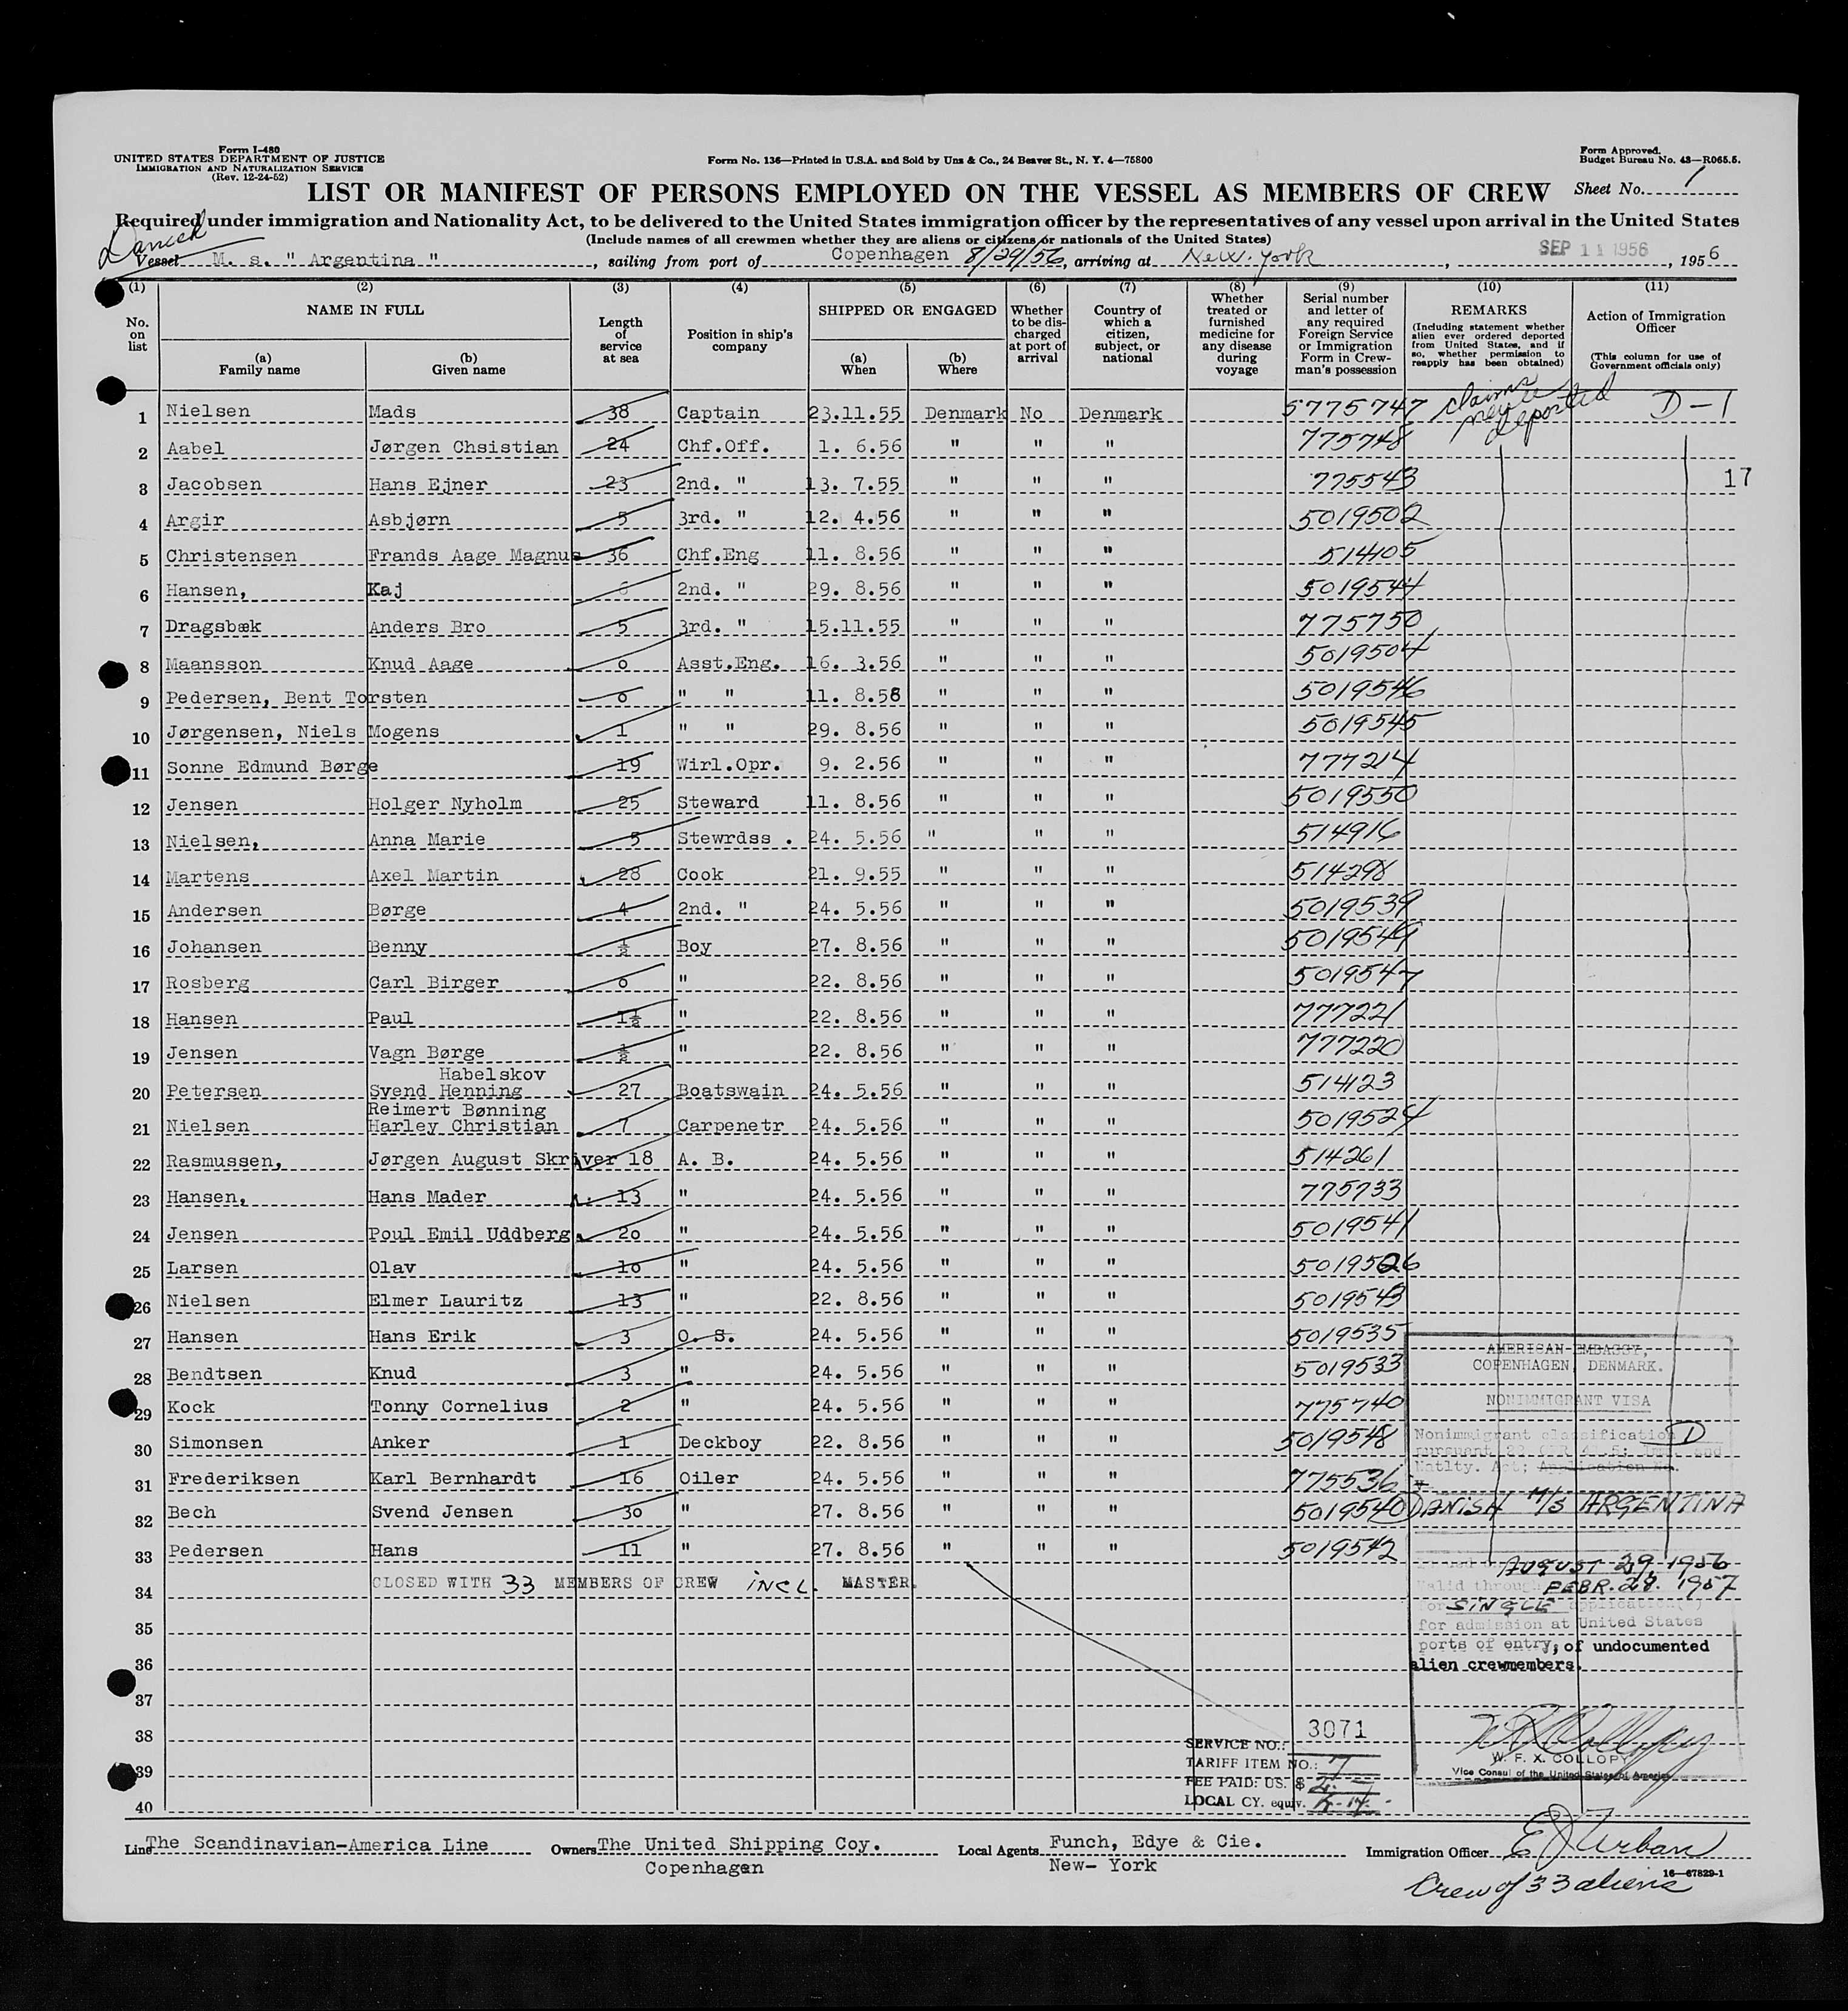 Form I-480
UNITED STATES DEPARTMENT OF JUSTICE
IMMIGRATION AND NATURALIZATION SERVICE
(Rev. 12-24-52)
Form No. 136—Printed in U.S.A. and Sold by Unz & Co., 24 Beaver St., N. Y. 4—75800
Form Approved.
Budget Bureau No. 43—R065.5.
LIST OR MANIFEST OF PERSONS EMPLOYED ON THE VESSEL AS MEMBERS OF CREW
Sheet No. 1
Required under immigration and Nationality Act, to be delivered to the United States immigration officer by the representatives of any vessel upon arrival in the United States
(Include names of all crewmen whether they are aliens or citizens or nationals of the United States)
Danish
Vessel M. s. " Argentina ", sailing from port of Copenhagen 8/29/56, arriving at New York, SEP 11 1956, 1956
(1) (2) (3) (4) (5) (6) (7) (8) (9) (10) (11)
No. on list
NAME IN FULL
(a) Family name
(b) Given name
Length of service at sea
Position in ship's company
SHIPPED OR ENGAGED
(a) When
(b) Where
Whether to be discharged at port of arrival
Country of which a citizen, subject, or national
Whether treated or furnished medicine for any disease during voyage
Serial number and letter of any required Foreign Service or Immigration Form in Crewman's possession
REMARKS
(Including statement whether alien ever ordered deported from United States, and if so, whether permission to reapply has been obtained)
Action of Immigration Officer
(This column for use of Government officials only)
1 Nielsen Mads 38 Captain 23.11.55 Denmark No Denmark 5775747 claims never deported D-1
2 Aabel Jørgen Chsistian 24 Chf.Off. 1. 6.56 " " " 775748
3 Jacobsen Hans Ejner 23 2nd. " 13. 7.55 " " " 775543 17
4 Argir Asbjørn 5 3rd. " 12. 4.56 " " " 5019502
5 Christensen Frands Aage Magnus 36 Chf.Eng 11. 8.56 " " " 514105
6 Hansen, Kaj 6 2nd. " 29. 8.56 " " " 5019544
7 Dragsbæk Anders Bro 5 3rd. " 15.11.55 " " " 775750
8 Maansson Knud Aage o Asst.Eng. 16. 3.56 " " " 5019504
9 Pedersen, Bent Torsten o " " 11. 8.56 " " " 5019546
10 Jørgensen, Niels Mogens 1 " " 29. 8.56 " " " 5019545
11 Sonne Edmund Børge 19 Wirl.Opr. 9. 2.56 " " " 777214
12 Jensen Holger Nyholm 25 Steward 11. 8.56 " " " 5019550
13 Nielsen, Anna Marie 5 Stewrdss . 24. 5.56 " " " 514916
14 Martens Axel Martin 28 Cook 21. 9.55 " " " 514298
15 Andersen Børge 4 2nd. " 24. 5.56 " " " 5019539
16 Johansen Benny ½ Boy 27. 8.56 " " " 5019549
17 Rosberg Carl Birger o " 22. 8.56 " " " 5019547
18 Hansen Paul 1½ " 22. 8.56 " " " 777221
19 Jensen Vagn Børge ½ " 22. 8.56 " " " 777220
Habelskov
20 Petersen Svend Henning 27 Boatswain 24. 5.56 " " " 514123
Reimert Bønning
21 Nielsen Harley Christian 7 Carpenetr 24. 5.56 " " " 5019524
22 Rasmussen, Jørgen August Skriver 18 A. B. 24. 5.56 " " " 514261
23 Hansen, Hans Mader 13 " 24. 5.56 " " " 775733
24 Jensen Poul Emil Uddberg 2o " 24. 5.56 " " " 5019541
25 Larsen Olav 1o " 24. 5.56 " " " 5019526
26 Nielsen Elmer Lauritz 13 " 22. 8.56 " " " 5019543
27 Hansen Hans Erik 3 O. S. 24. 5.56 " " " 5019535
28 Bendtsen Knud 3 " 24. 5.56 " " " 5019533
29 Kock Tonny Cornelius 2 " 24. 5.56 " " " 775740
30 Simonsen Anker 1 Deckboy 22. 8.56 " " " 5019548
31 Frederiksen Karl Bernhardt 16 Oiler 24. 5.56 " " " 775536
32 Bech Svend Jensen 3o " 27. 8.56 " " " 5019540
33 Pedersen Hans 11 " 27. 8.56 " " " 5019542
34 CLOSED WITH 33 MEMBERS OF CREW INCL. MASTER.
35
36
37
38
39
40
AMERICAN EMBASSY,
COPENHAGEN, DENMARK.
NONIMMIGRANT VISA
Nonimmigrant classification D
pursuant 22 CFR 41.5; Imm. and
Natlty. Act; Application No.
DANISH M/S ARGENTINA
AUGUST 29, 1956
Valid through FEBR. 28. 1957
for SINGLE application( )
for admission at United States
ports of entry, of undocumented
alien crewmembers.
W. F. X. COLLOPY
Vice Consul of the United States of America
SERVICE NO.: 3071
TARIFF ITEM NO.: 7
FEE PAID: US. $
LOCAL CY. equiv.
Line The Scandinavian-America Line Owners The United Shipping Coy. Local Agents Funch, Edye & Cie. Immigration Officer E J Urban
Copenhagen New- York 16—67829-1
Crew of 33 aliens